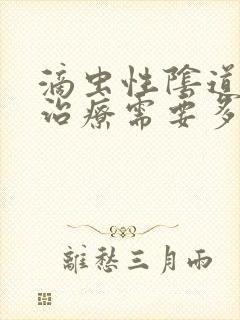 滴虫性陰道
治療需要多
離愁三月雨